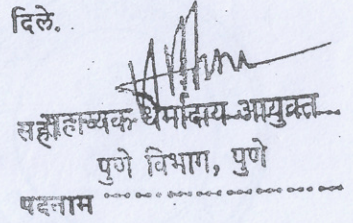 दिले.
सहाय्यक धर्मादाय आयुक्त
पुणे विभाग, पुणे
पदनाम